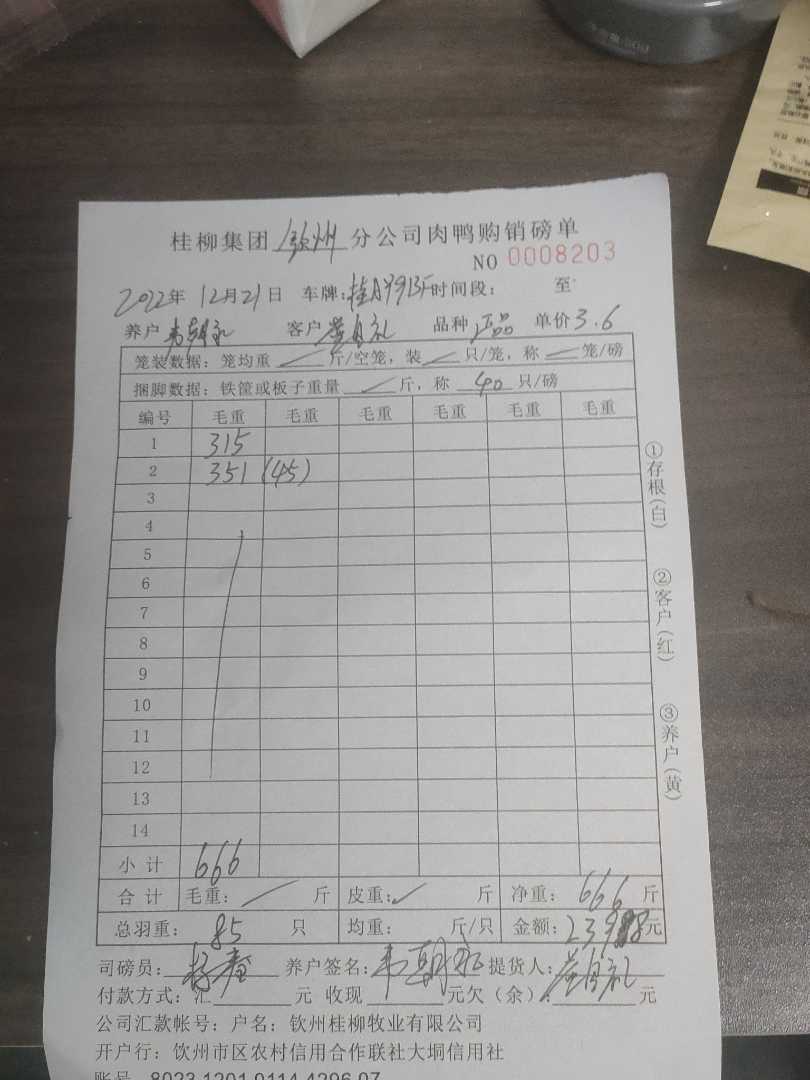 桂柳集团 钦州 分公司肉鸭购销磅单
NO 0008203
2022年 12月21日 车牌: 时间段: 至
养户 韦朝永 客户 品种 正品 单价 3.6
笼装数据: 笼均重 斤/空笼, 装 只/笼, 称 笼/磅
捆脚数据: 铁筐或板子重量 斤, 称 40 只/磅
编号 毛重 毛重 毛重 毛重 毛重 毛重
1 315
2 351 (45)
3
4
5
6
7
8
9
10
11
12
13
14
小计 666
合计 毛重: 斤 皮重: 斤 净重: 666 斤
总羽重: 85 只 均重: 斤/只 金额: 元
司磅员: 养户签名: 韦朝永 提货人:
付款方式: 汇 元 收现 元欠(余): 元
公司汇款帐号: 户名: 钦州桂柳牧业有限公司
开户行: 钦州市区农村信用合作联社大垌信用社
账号 8023 1201 0114 4296 07
①存根(白)
②客户(红)
③养户(黄)